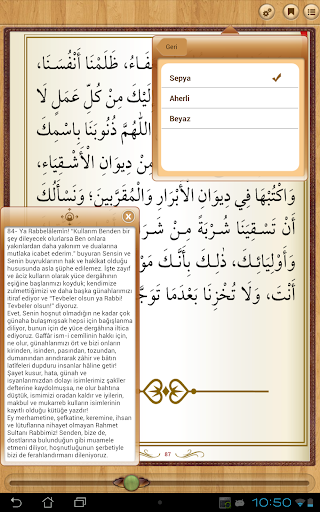 Geri
Sepya
Aherli
Beyaz
فَاءُ، ظَلَمْنَا أَنْفُسَنَا،
مِنْ كُلِّ عَمَلٍ لَا
اَللّٰهُمَّ ذُنُوبَنَا بِاِسْمِكَ
مِنْ دِيوَانِ الْأَشْقِيَاءِ،
وَاكْتُبْهَا فِي دِيوَانِ الْأَبْرَارِ وَالْمُقَرَّبِينَ؛ وَنَسْأَلُكَ
أَنْ تَسْقِيَنَا شَرَابَ
وَأَوْلِيَائِكَ، ذٰلِكَ بِأَنَّكَ
أَنْتَ، وَلَا تُخْزِنَا بَعْدَمَا
84- Ya Rabbelâlemin! "Kullarım Benden bir
şey dileyecek olurlarsa Ben onlara
yakınlardan daha yakınım ve dualarına
mutlaka icabet ederim." buyuran Sensin ve
Senin buyruklarının hak ve hakikat olduğu
hususunda asla şüphe edilemez. İşte zayıf
ve âciz kulların olarak yüce dergâhının
eşiğine başlarımızı koyduk; kendimize
zulumetmişizdir ve daha başka günahlarımızı
itiraf ediyor ve "Tevbeler olsun ya Rabbi!
Tevbeler olsun!" diyoruz.
Evet, Senin hoşnut olmadığın ne kadar çok
günaha bulaşmışsak hepsi için bağışlanma
diliyor, bunun için de yüce dergâhına iltica
ediyoruz. Gaffâr ism-i cemilinin hakkı için,
ne olur, günahlarımızı ört ve bizi onların
kirinden, isinden, pasından, tozundan,
dumanından arındırarak zâhir ve bâtın
latîfeleri dupduru insanlar hâline getir!
Şayet kusur, hata, günah ve
isyanlarımızdan dolayı isimlerimiz şakiler
defterine kaydolmuşsa, ne olur bahtına
düştük, ismimizi oradan kaldır ve iyilerin,
makbul ve mukarreb kulların isimlerinin
kayıtlı olduğu kütüğe yazdır!
Ey merhametine, şefkatine, keremine, ihsan
ve lütuflarına nihayet olmayan Rahmet
Sultanı Rabbimiz! Senden, bize de,
dostlarına bulunduğun gibi muamele
etmeni diliyor, hoşnutluğunun şerbetiyle
bizi de ferahlandırmanı dileniyoruz.
87
10:50